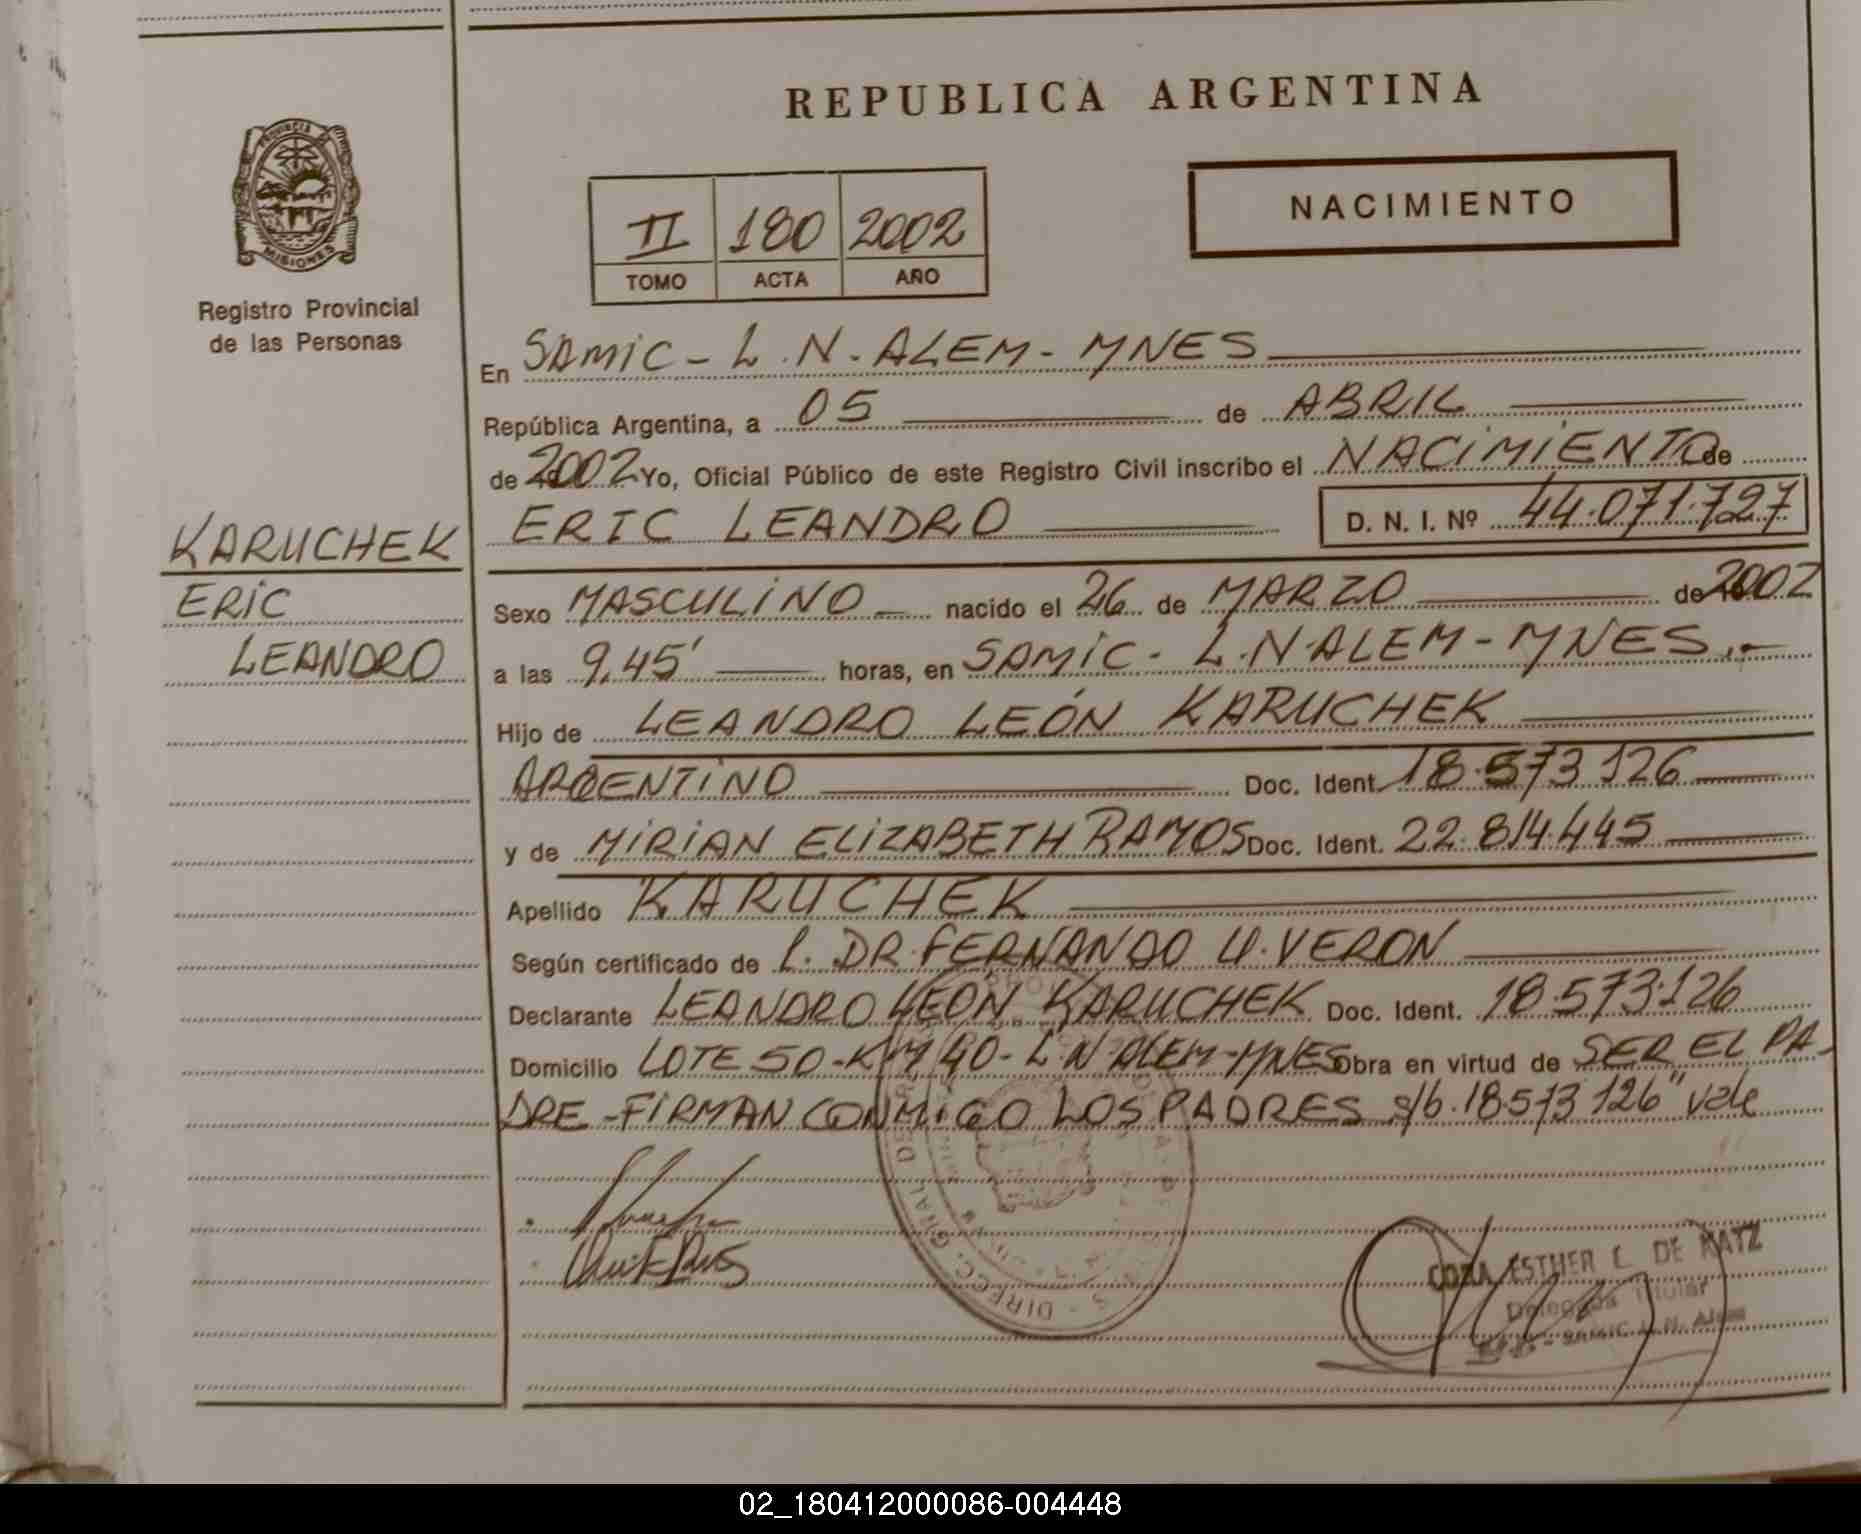 REPUBLICA ARGENTINA
PROVINCIA DE
MISIONES
Registro Provincial
de las Personas
II 180 2002
TOMO ACTA AÑO
NACIMIENTO
En SAMIC - L.N. ALEM - MNES
República Argentina, a 05 de ABRIL
de 2002 Yo, Oficial Público de este Registro Civil inscribo el NACIMIENTO de
ERIC LEANDRO D. N. I. Nº 44.071.727
KARUCHEK
ERIC
LEANDRO
Sexo MASCULINO nacido el 26 de MARZO de 2002
a las 9,45' horas, en SAMIC - L.N. ALEM - MNES.-
Hijo de LEANDRO LEÓN KARUCHEK
ARGENTINO Doc. Ident. 18.573.126
y de MIRIAN ELIZABETH RAMOS Doc. Ident. 22.814.445
Apellido KARUCHEK
Según certificado de l. DR. FERNANDO U. VERON
Declarante LEANDRO LEON KARUCHEK Doc. Ident. 18.573.126
Domicilio LOTE 50 - KM 40 - L.N. ALEM - MNES Obra en virtud de SER EL PA-
DRE - FIRMAN CONMIGO LOS PADRES s/b. 18.573.126" vale
ESTHER DE KATZ
Delegada Titular
SAMIC L.N. Alem
02_180412000086-004448